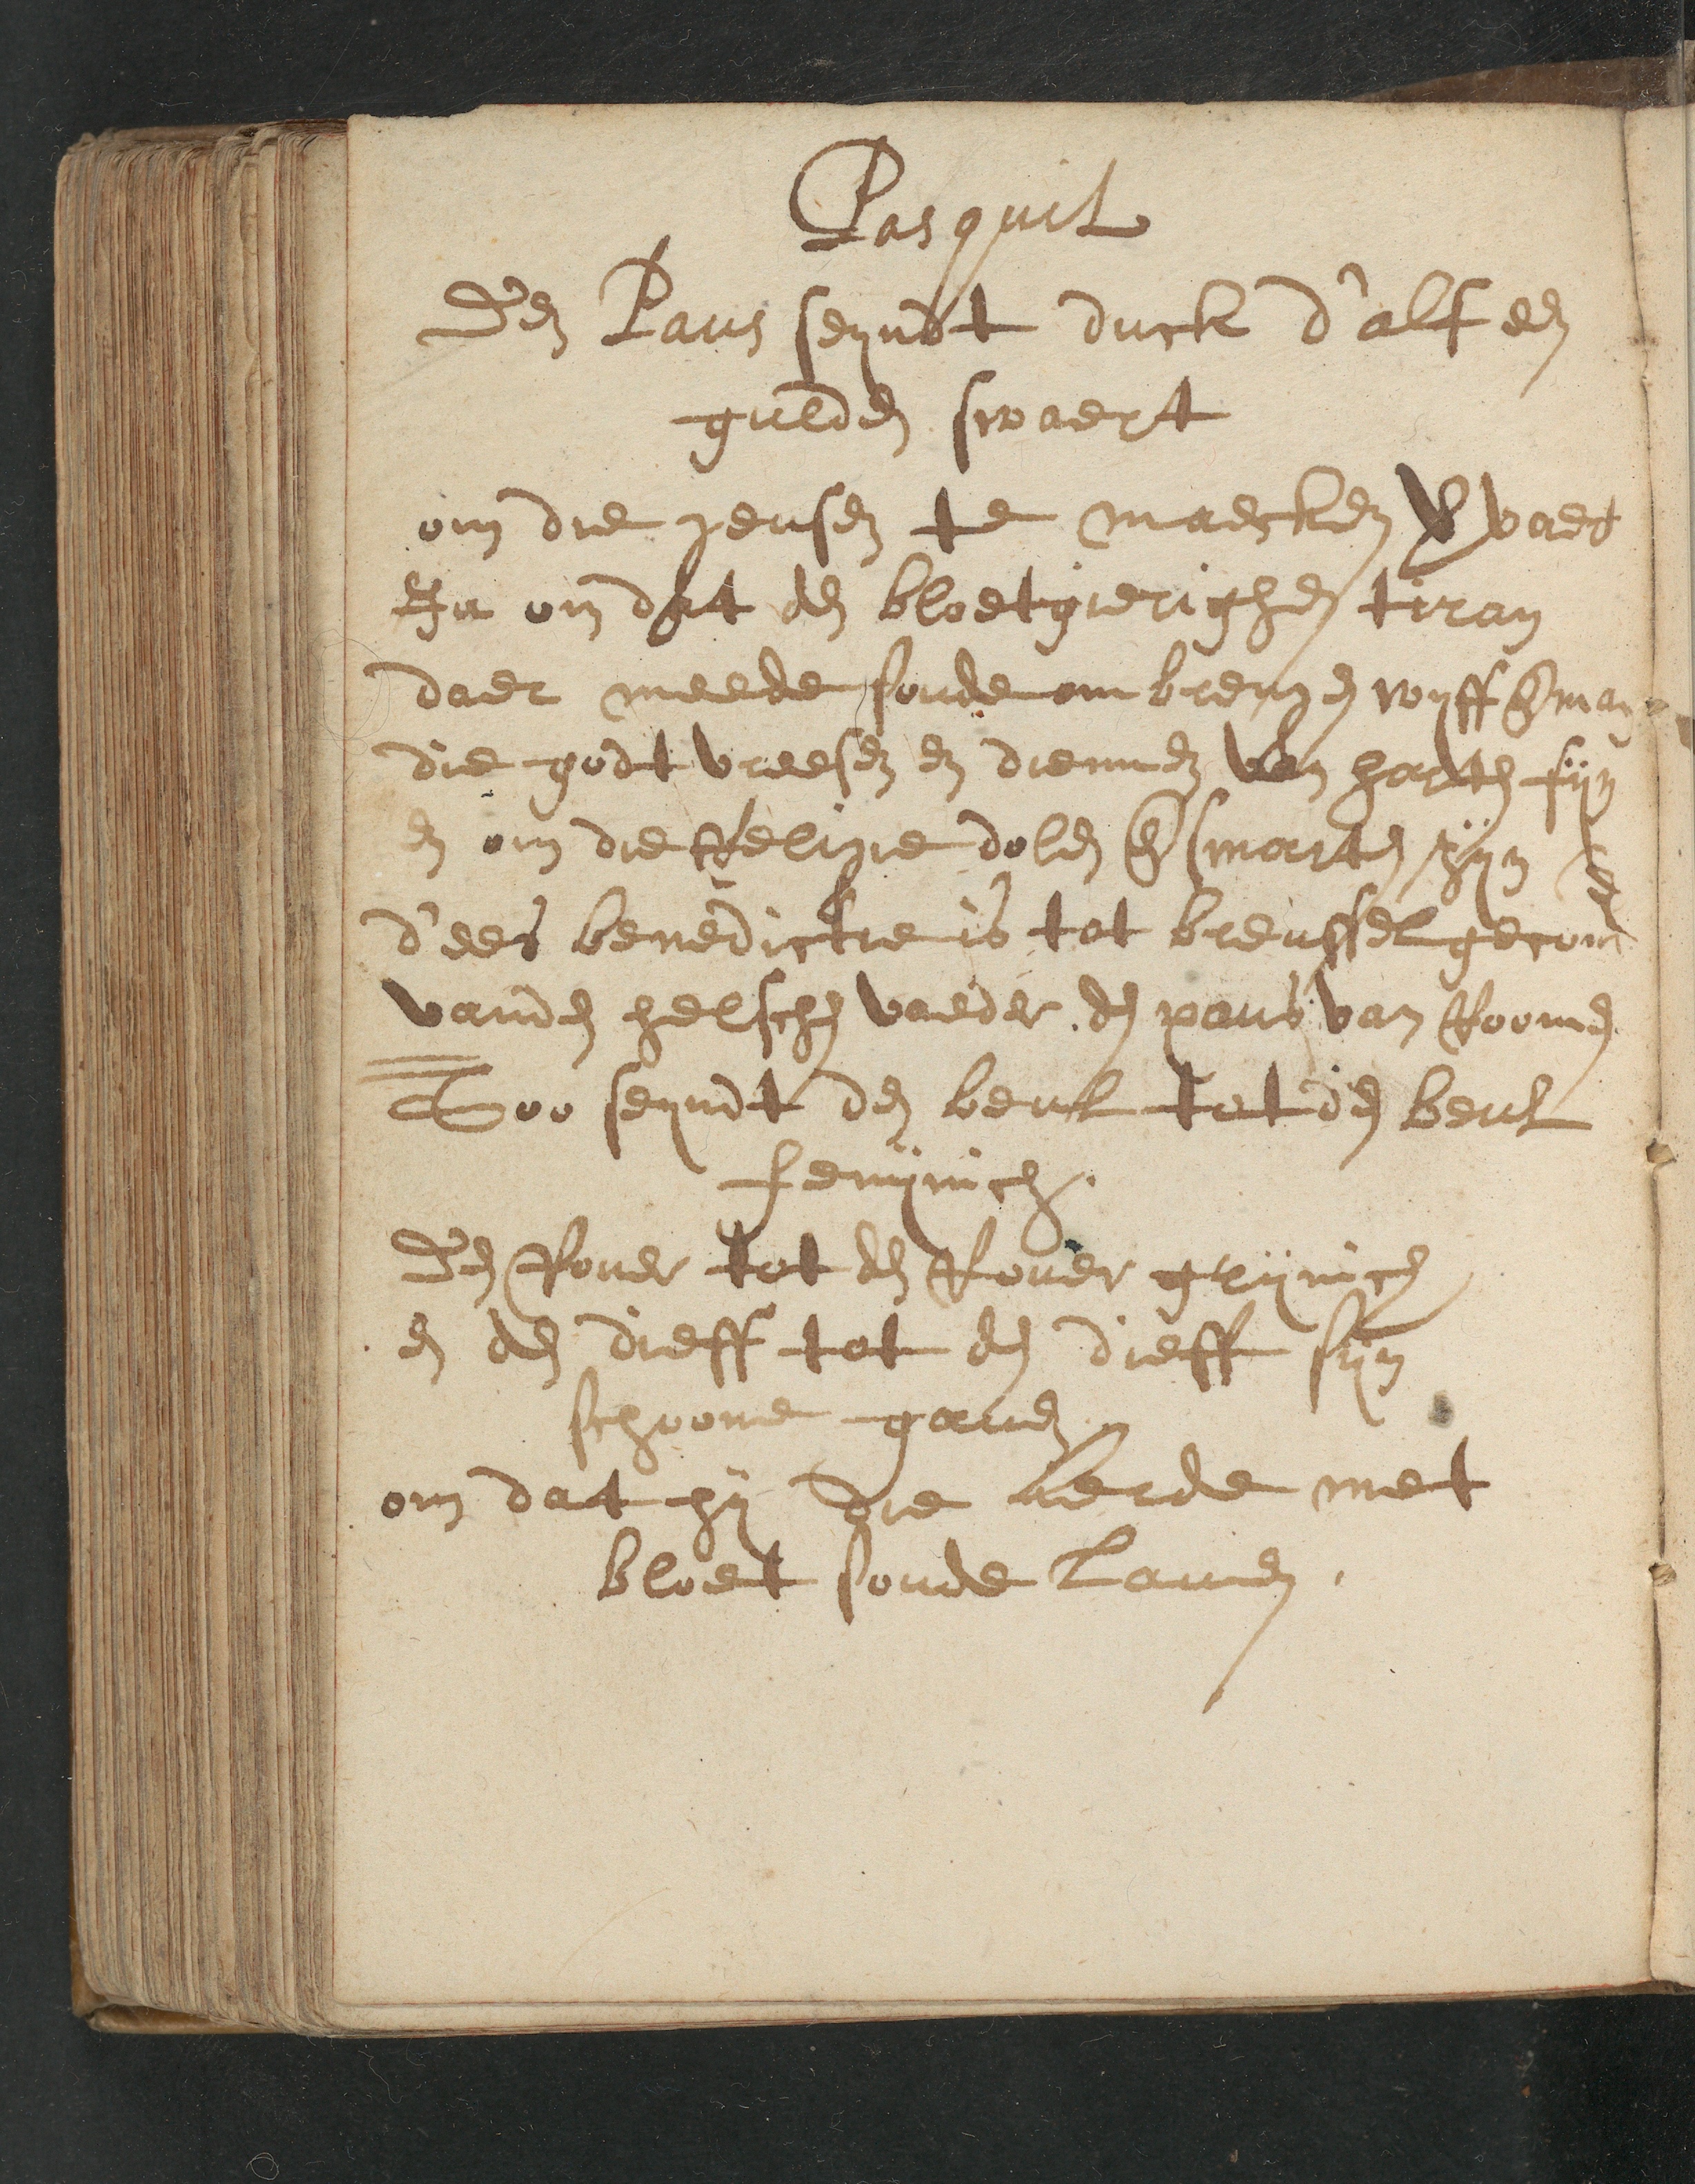 Pasquil
Den Paus seyndt duck d'alf een
gulden swaert
om die geusen te maecken vervaert
Ja om dat den bloetgierighen tiran
daer meede soude ombrengen wyff en man
die godt vreesen en diennen van harten fijn
en om die Religie dolen en smarten zijn
d'ees benedictie is tot breussel gecomen
vanden helschen vaeder den paus van Roomen
Soo seyndt den beul tot den beul
fenijnich.
Den Rover tot den Rover grijnich
en den dieff tot den dieff sijn
schoone gaven
om dat hij die aerde met
bloet soude Laven.